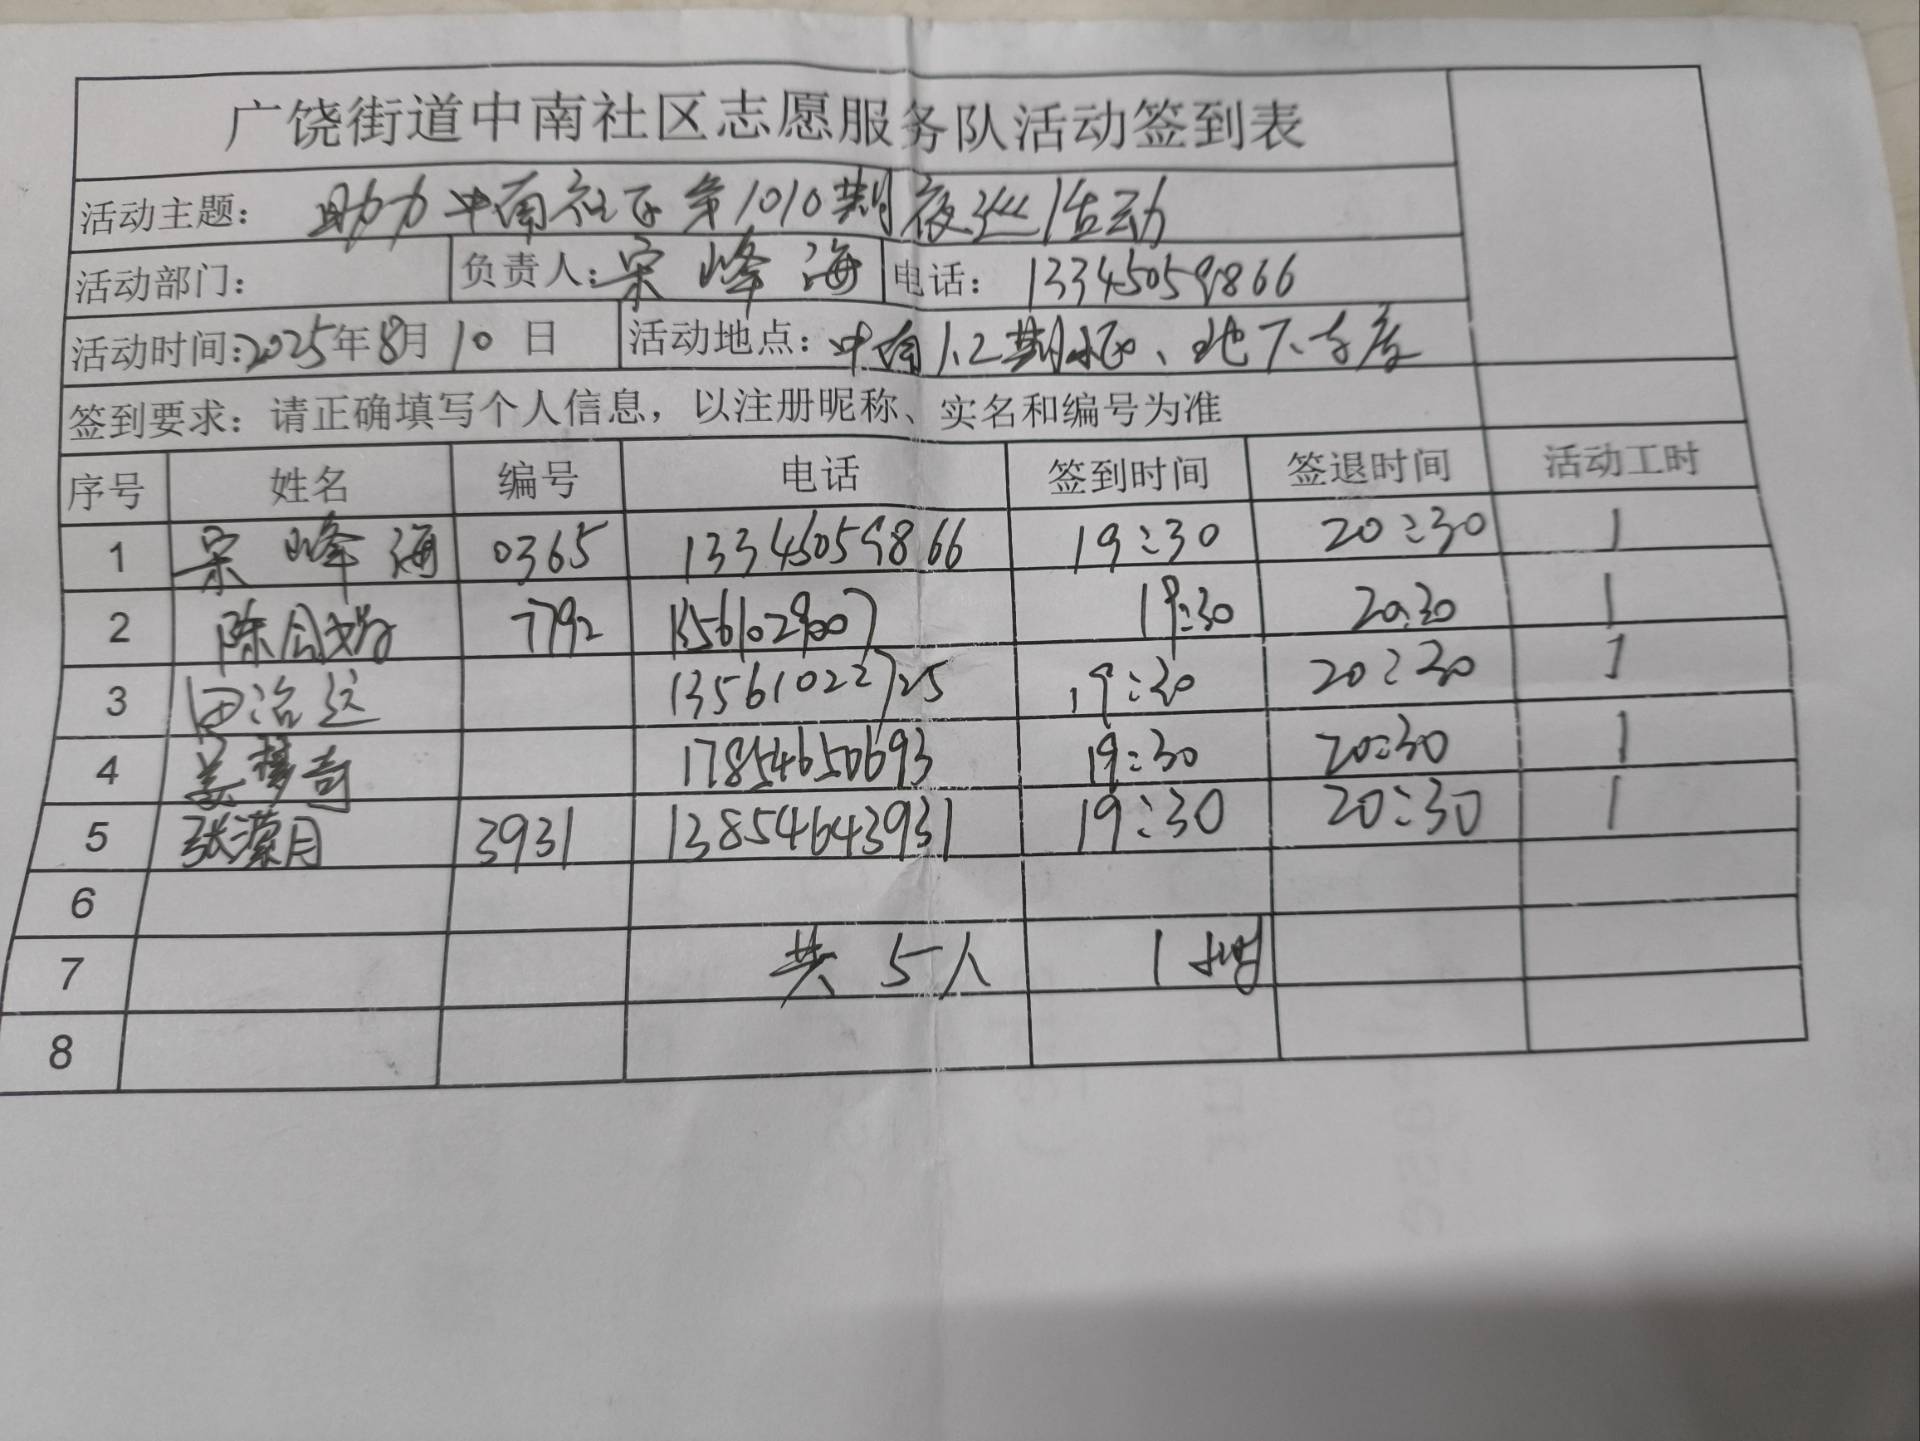 广饶街道中南社区志愿服务队活动签到表
活动主题： 助力中南社区第1010期夜巡活动
活动部门： 负责人：宋峰海 电话： 13345059866
活动时间：2025年8月10日 活动地点：中南1.2期 、地下车库
签到要求：请正确填写个人信息，以注册昵称、实名和编号为准
序号 姓名 编号 电话 签到时间 签退时间 活动工时
1 宋峰海 0365 13345059866 19:30 20:30 1
2 陈 7792 15610290007 19:30 20:30 1
3 田治远 13561022725 19:30 20:30 1
4 姜梦奇 17854650693 19:30 20:30 1
5 张濛月 3931 13854643931 19:30 20:30 1
6
7 共5人 1小时
8